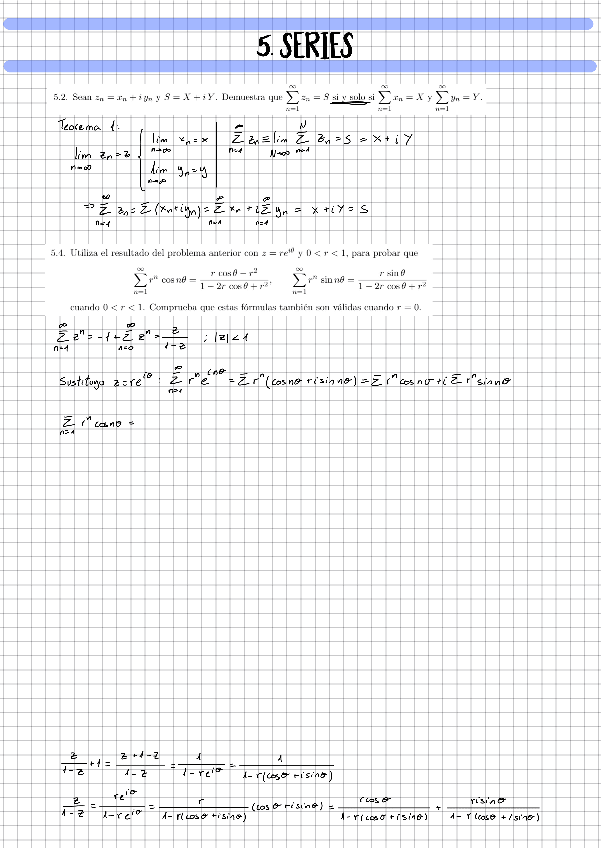 5. SERIES
5.2. Sean zₙ = xₙ + i yₙ y S = X + i Y. Demuestra que ∑_{n=1}^{∞} zₙ = S si y solo si ∑_{n=1}^{∞} xₙ = X y ∑_{n=1}^{∞} yₙ = Y.
Teorema 1:
lim_{n→∞} zₙ = z { lim_{n→∞} xₙ = x | ∑_{n=1}^{∞} zₙ ≡ lim_{N→∞} ∑_{n=1}^{N} zₙ = S = X + i Y
lim_{n→∞} yₙ = y
⇒ ∑_{n=1}^{∞} zₙ = ∑ (xₙ + iyₙ) = ∑_{n=1}^{∞} xₙ + i ∑_{n=1}^{∞} yₙ = X + iY = S
5.4. Utiliza el resultado del problema anterior con z = re^{iθ} y 0 < r < 1, para probar que
∑_{n=1}^{∞} rⁿ cos nθ = (r cos θ − r²)/(1 − 2r cos θ + r²), ∑_{n=1}^{∞} rⁿ sin nθ = (r sin θ)/(1 − 2r cos θ + r²)
cuando 0 < r < 1. Comprueba que estas fórmulas también son válidas cuando r = 0.
∑_{n=1}^{∞} zⁿ = −1 + ∑_{n=0}^{∞} zⁿ = z/(1 − z) ; |z| < 1
Sustituyo z = re^{iθ} : ∑_{n=1}^{∞} rⁿ e^{inθ} = ∑ rⁿ (cos nθ + i sin nθ) = ∑ rⁿ cos nθ + i ∑ rⁿ sin nθ
∑_{n=1} rⁿ cos nθ =
z/(1 − z) + 1 = (z + 1 − z)/(1 − z) = 1/(1 − re^{iθ}) = 1/(1 − r(cos θ + i sin θ))
z/(1 − z) = re^{iθ}/(1 − re^{iθ}) = r/(1 − r(cos θ + i sin θ)) (cos θ + i sin θ) = r cos θ/(1 − r(cos θ + i sin θ)) + r i sin θ/(1 − r(cos θ + i sin θ))